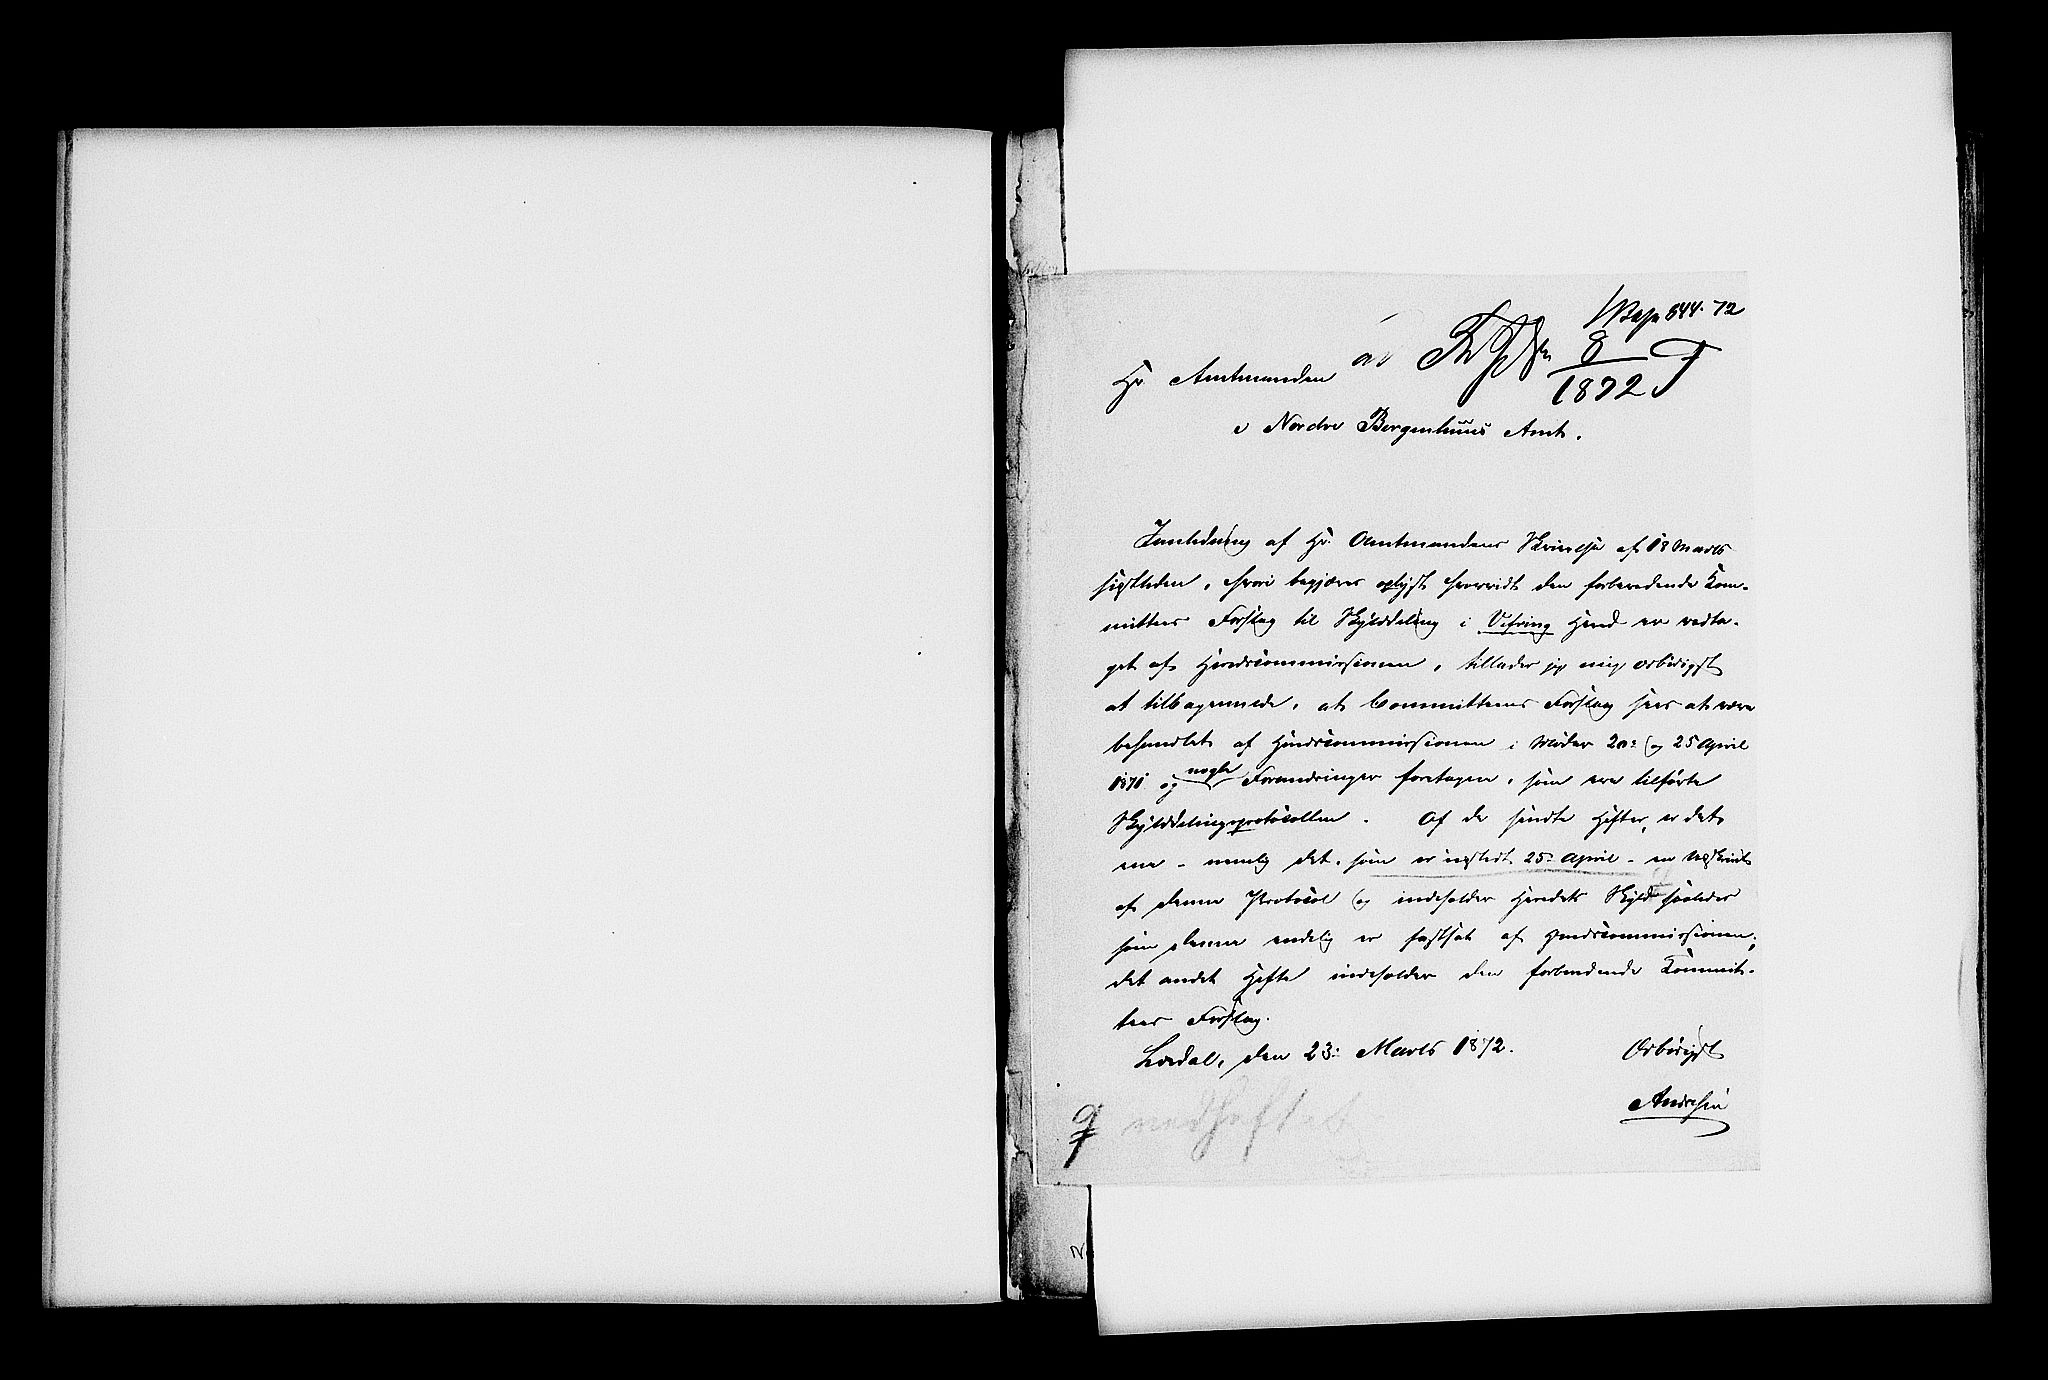 544. 72
8
1872
Hr. Amtmanden
i Nordre Bergenhuus Amt.
I Anledning af Hr. Amtmandens Skrivelse af 18 Marts
sidstleden, hvori begjæres oplyst hvorvidt den forberedende Com-
mittees Forslag til Skylddeling i Vefring Herred er vedta-
get af Herredscommissionen, tillader jeg mig ærbødigst
at tilbagemelde, at Committeens Forslag sees at være
behandlet af Herredscommissionen i Møder 20: og 25 April
1871 og nogle Forandringer foretagne, som ere tilførte
Skylddelingsprotocollen. Af de sendte Hefter, er det
ene - nemlig det, som er udstedt 25: April - en Udskrift
af denne Protocol og indeholder Herredets Skyld saaledes
som denne endelig er fastsat af Herredscommissionen;
det andet Hefte indeholder den forberedende Commit-
tees Forslag.
Lærdal, den 23: Marts 1872.
Ærbødigst
Andresen
vedheftet